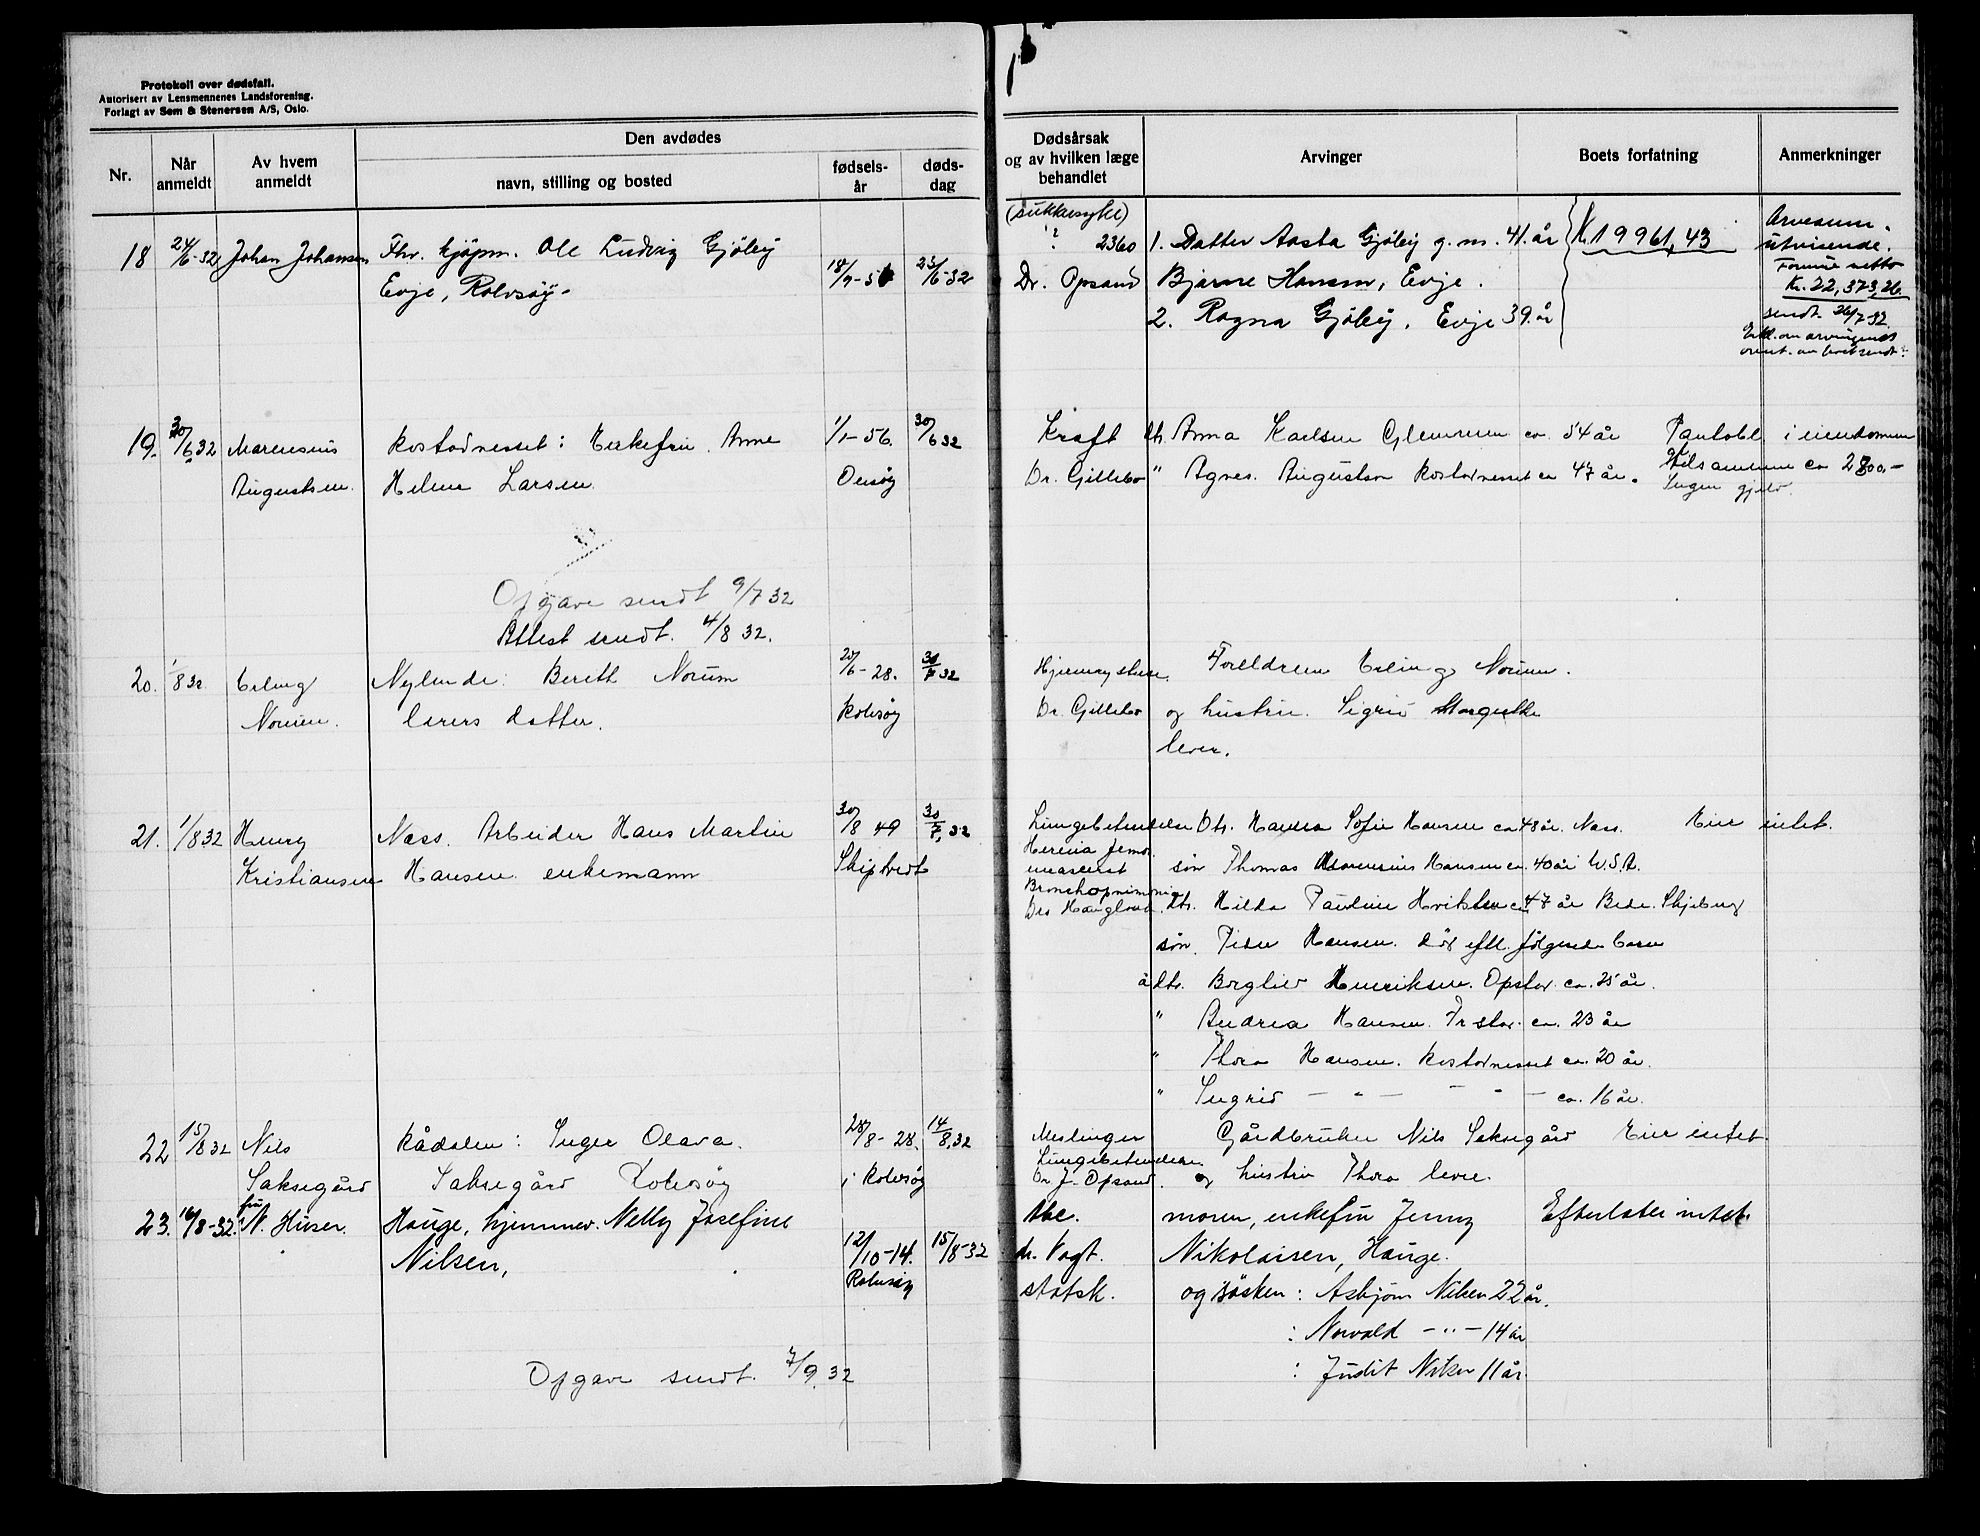 Protokoll over dødsfall.
Autorisert av Lensmennenes Landsforening.
Forlagt av Sem & Stenersen A/S, Oslo.
Nr.
Når anmeldt
Av hvem anmeldt
Den avdødes
navn, stilling og bosted
fødselsår
dødsdag
Dødsårsak
og av hvilken læge
behandlet
Arvinger
Boets forfatning
Anmerkninger
18 24/6-32 Johan Johansen Fhv. kjøpm. Ole Ludvig Gjøby
Evje, Rolvsøy - 18/9-51 23/6-32
(sukkersyke)
? 2360 1. Datter Aasta Gjøby g.m. 41. år Kr. 19961,43
Dr. Opsand Bjarne Hansen, Evje.
2. Ragna Gjøby, Evje 39. år
Arvesum.
utvisende.
Formue netto
Kr. 22,373,26.
sendt 26/7-32.
19. 30/6 32 Marensius Kostadnesset: Enkefru. Anne 1/1-56. 30/6 32
Augustsen. Helene Larsen. Onsøy
Kreft dtr. Anna Karlsen Glemmen ca. 54 år Pantobl. i eiendommen
Dr. Gillebo " Agnes. Augustsen Kostadnesset ca 47 år. tilsammen ca 2800.-
Ingen gjeld.
Opgave sendt 9/7 32
Attest sendt. 4/8 32.
20. 1/8 32 Erling Nylende: Berith Norum 20/6-28. 30/7 32
Norum. lærers datter. Rolvsøy
Hjernebetendelse. Foreldrene Erling Norum.
Dr. Gillebo og hustru. Sigrid Margrethe
lever.
21. 1/8 32 Henry Næss. Arbeider Hans Martin 30/8 49 30/7, 32
Kristiansen Hansen. enkemann Skiptvedt
Lungebetendelse Dtr. Hanna Sofie Hansen ca 48 år. Næss. Eier intet.
Hernia femor.
søn Thomas Marensius Hansen ca. 40 år U.S.A.
Bronchopnimonia
dtr. Hilda Pauline Hvidsten ca 47 år Bede. Skjeberg
søn. Peder Hansen. død eftl. følgende barn
a dtr. Borghild Henriksen. Opstad. ca. 25 år.
" Andrea Hansen. Fr.stad. ca. 23 år
" Thora Hansen. Kostadnesset ca. 20 år.
" Ingrid — " — " — ca. 16 år.
22 15/8 32 Nils Rådalen: Inger Olava. 28/8-28. 14/8, 32
Saksegård Saksegård Rolvsøy i Rolvsøy
Meslinger Gårdbruker Nils Saksegård Eier intet
Lungebetendelse
Dr. J. Opsand. og hustru Thora lever.
23. 16/8-32. fru N. Hauge, hjemmev. Nelly Josefine
Nilsen, 12/10-14. 15/8-32
Rolvsøy
tbc. moren, enkefru Jenny Efterlater intet.
dr. Vogt. Nikolaisen, Hauge.
statsk. og søsken: Asbjørn Nilsen 22 år.
: Norvald — " — 14 år
: Judit Nilsen 11 år.
Opgave sendt. 7/9 32